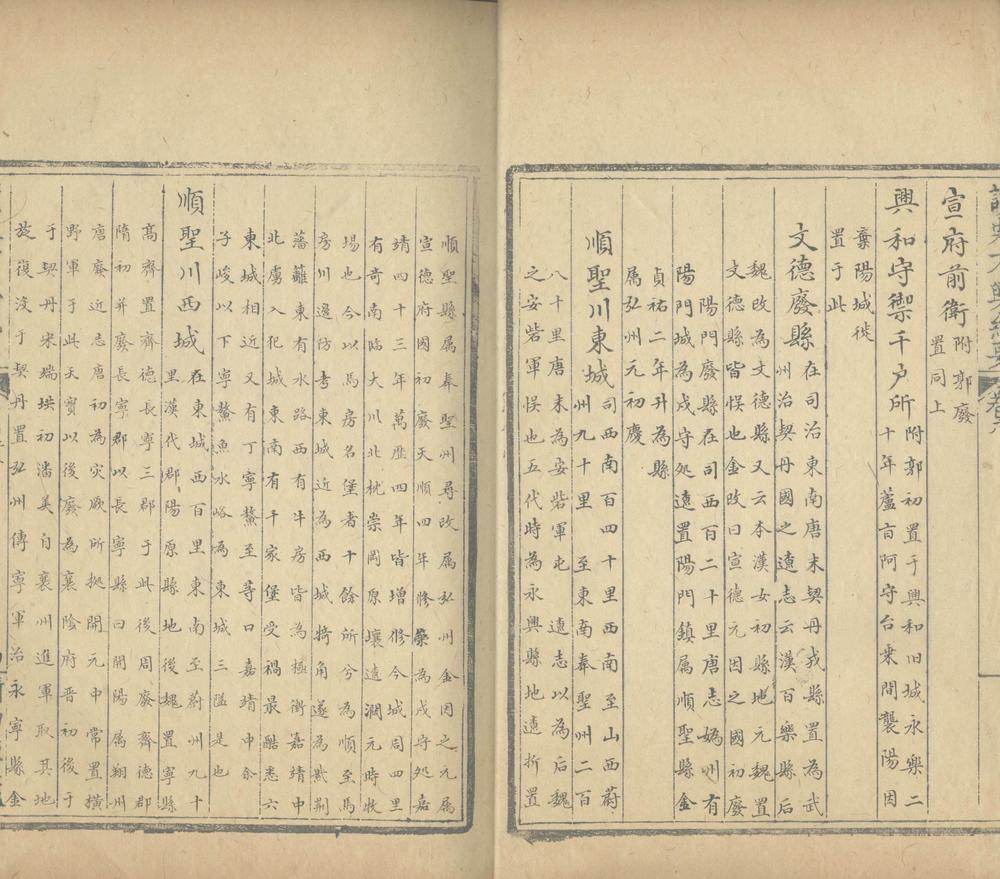 宣府前衛附郭廢
置同上
興和守禦千户所附郭初置于興和旧城永樂二
十年蘆亯阿守台乗間襲陽因
棄陽城徙
置于此
文德廢縣在司治東南唐末契丹戎縣置為武
州治契丹國之遠志云漢百樂縣后
魏改為文德縣又云本漢女初縣地元魏置
文德縣皆悮也金改曰宣德元因之國初廢
陽門廢縣在司西百二十里唐志媯州有
陽門城為戍守処遠置陽門鎮属順聖縣金
貞祐二年升為縣
属弘州元初慶
順聖川東城司西南百四十里西南至山西蔚
州九十里至東南奉聖州二百
八十里唐末為安砦軍屯遠志以為后魏
之安砦軍悮也五代時為永興縣地遠折置
順聖縣属奉聖州尋改属弘州金因之元属
宣德府國初廢天順四年修築為戍守処嘉
靖四十三年萬歷四年皆增修今城周四里
有竒南臨大川北枕崇岡原壤遠濶元時牧
場也今以馬房名堡者十餘所兮為順至馬
房川邊防考東城近為西城掎角遂為戕荆
藩籬東有水路西有牛房皆為極衝嘉靖中
北虜入犯城東南有千家堡受禍最酷悉六
東城相近又有丁寧鰲至等口嘉靖中佘
子峻以下寧鰲魚水峪為東城三隘是也
順聖川西城在東城西百里東南至蔚州九十
里漢代郡陽原縣地後魏置寧縣
髙齊置齊德長寧三郡于此後周廢齊德郡
隋初并廢長寧郡以長寧縣曰開陽属朔州
唐廢近志唐初為突厥所拠開元中常置横
野軍于此天寶以後廢為襄陰府晋初後于
于契丹宋端珙初潘美自襄州進軍取其地
旋復没于契丹置弘州傳寧軍治永寧縣金